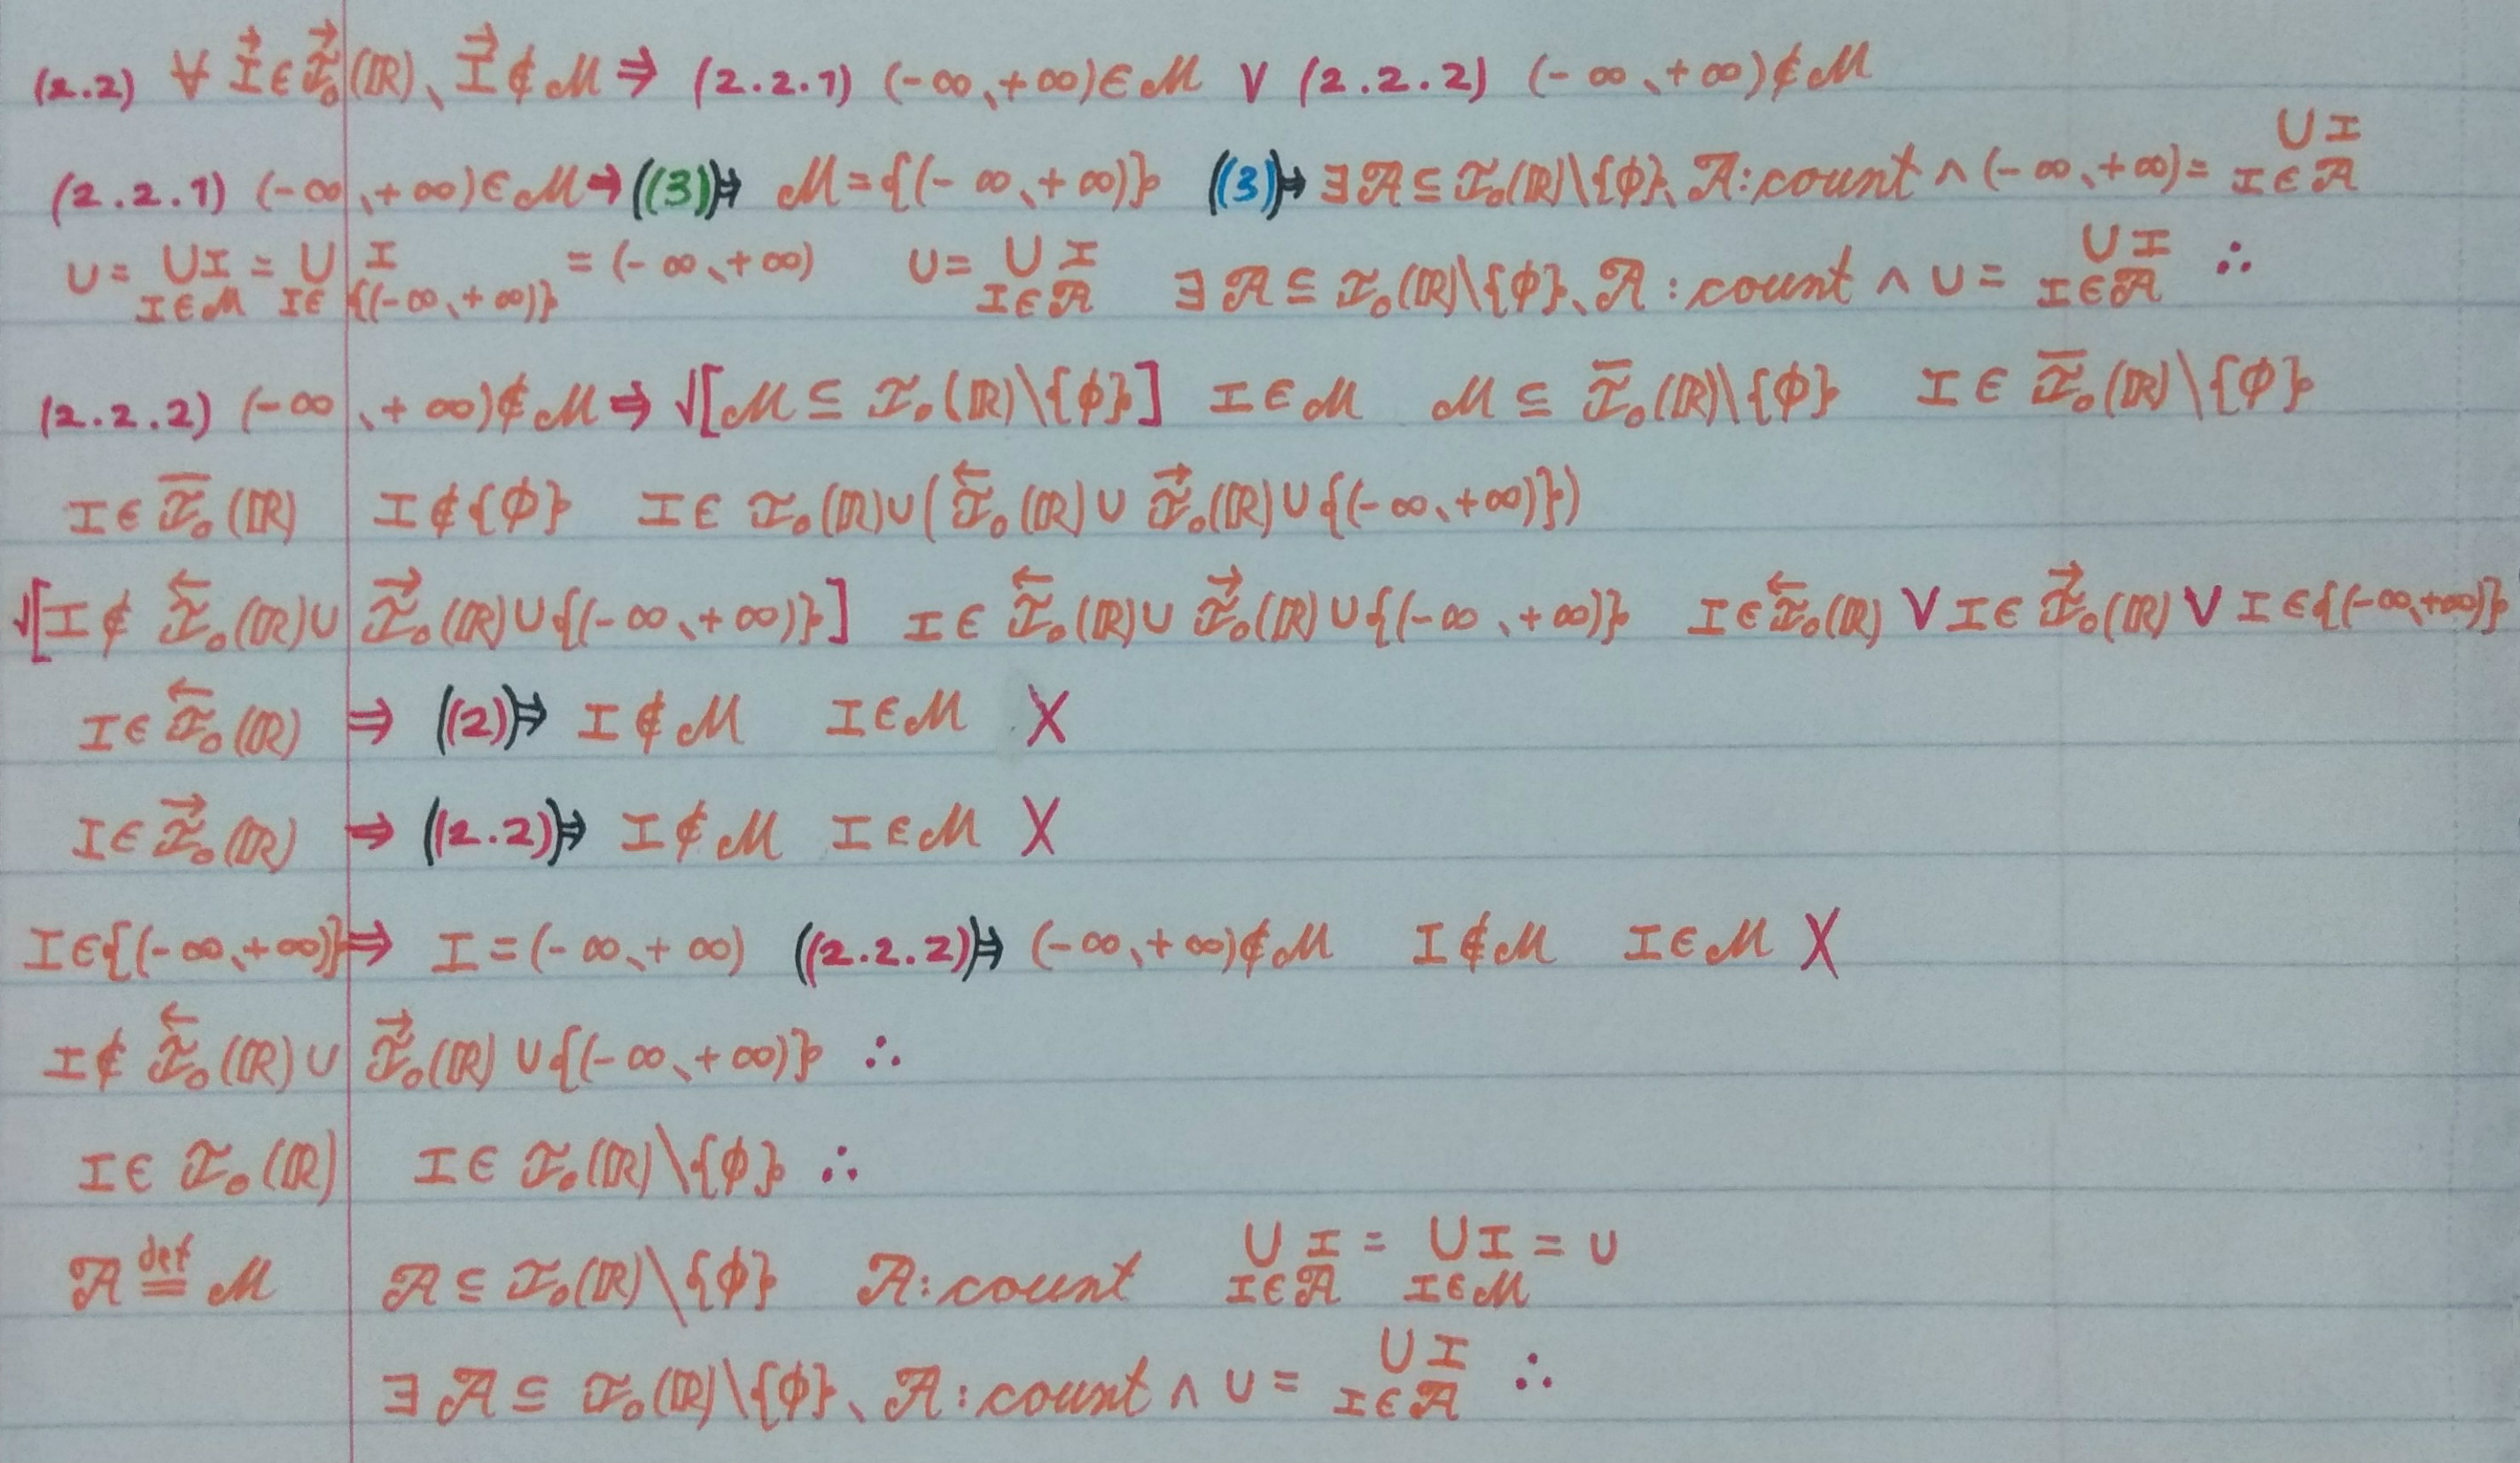 (2.2) ∀ I⃗ ∈ ℐ⃗₀(ℝ)、I⃗ ∉ ℳ ⇒ (2.2.1) (-∞、+∞) ∈ ℳ ∨ (2.2.2) (-∞、+∞) ∉ ℳ
(2.2.1) (-∞、+∞) ∈ ℳ ⇒ ((3)) ⇒ ℳ = {(-∞、+∞)} ((3)) ⇒ ∃ 𝒜 ⊆ ℐ₀(ℝ)\{∅}、𝒜 : count ∧ (-∞、+∞) = ∪_{I∈𝒜} I
U = ∪_{I∈ℳ} I = ∪_{I∈{(-∞、+∞)}} I = (-∞、+∞) U = ∪_{I∈𝒜} I ∃ 𝒜 ⊆ ℐ₀(ℝ)\{∅}、𝒜 : count ∧ U = ∪_{I∈𝒜} I ∴
(2.2.2) (-∞、+∞) ∉ ℳ ⇒ √[ℳ ⊆ ℐ₀(ℝ)\{∅}] I ∈ ℳ ℳ ⊆ ℐ̅₀(ℝ)\{∅} I ∈ ℐ̅₀(ℝ)\{∅}
I ∈ ℐ̅₀(ℝ) I ∉ {∅} I ∈ ℐ₀(ℝ) ∪ (ℐ⃖₀(ℝ) ∪ ℐ⃗₀(ℝ) ∪ {(-∞、+∞)})
√[I ∉ ℐ⃖₀(ℝ) ∪ ℐ⃗₀(ℝ) ∪ {(-∞、+∞)}] I ∈ ℐ⃖₀(ℝ) ∪ ℐ⃗₀(ℝ) ∪ {(-∞、+∞)} I ∈ ℐ⃖₀(ℝ) ∨ I ∈ ℐ⃗₀(ℝ) ∨ I ∈ {(-∞、+∞)}
I ∈ ℐ⃖₀(ℝ) ⇒ ((2)) ⇒ I ∉ ℳ I ∈ ℳ X
I ∈ ℐ⃗₀(ℝ) ⇒ ((2.2)) ⇒ I ∉ ℳ I ∈ ℳ X
I ∈ {(-∞、+∞)} ⇒ I = (-∞、+∞) ((2.2.2)) ⇒ (-∞、+∞) ∉ ℳ I ∉ ℳ I ∈ ℳ X
I ∉ ℐ⃖₀(ℝ) ∪ ℐ⃗₀(ℝ) ∪ {(-∞、+∞)} ∴
I ∈ ℐ₀(ℝ) I ∈ ℐ₀(ℝ)\{∅} ∴
𝒜 ≝ ℳ 𝒜 ⊆ ℐ₀(ℝ)\{∅} 𝒜 : count ∪_{I∈𝒜} I = ∪_{I∈ℳ} I = U
∃ 𝒜 ⊆ ℐ₀(ℝ)\{∅}、𝒜 : count ∧ U = ∪_{I∈𝒜} I ∴